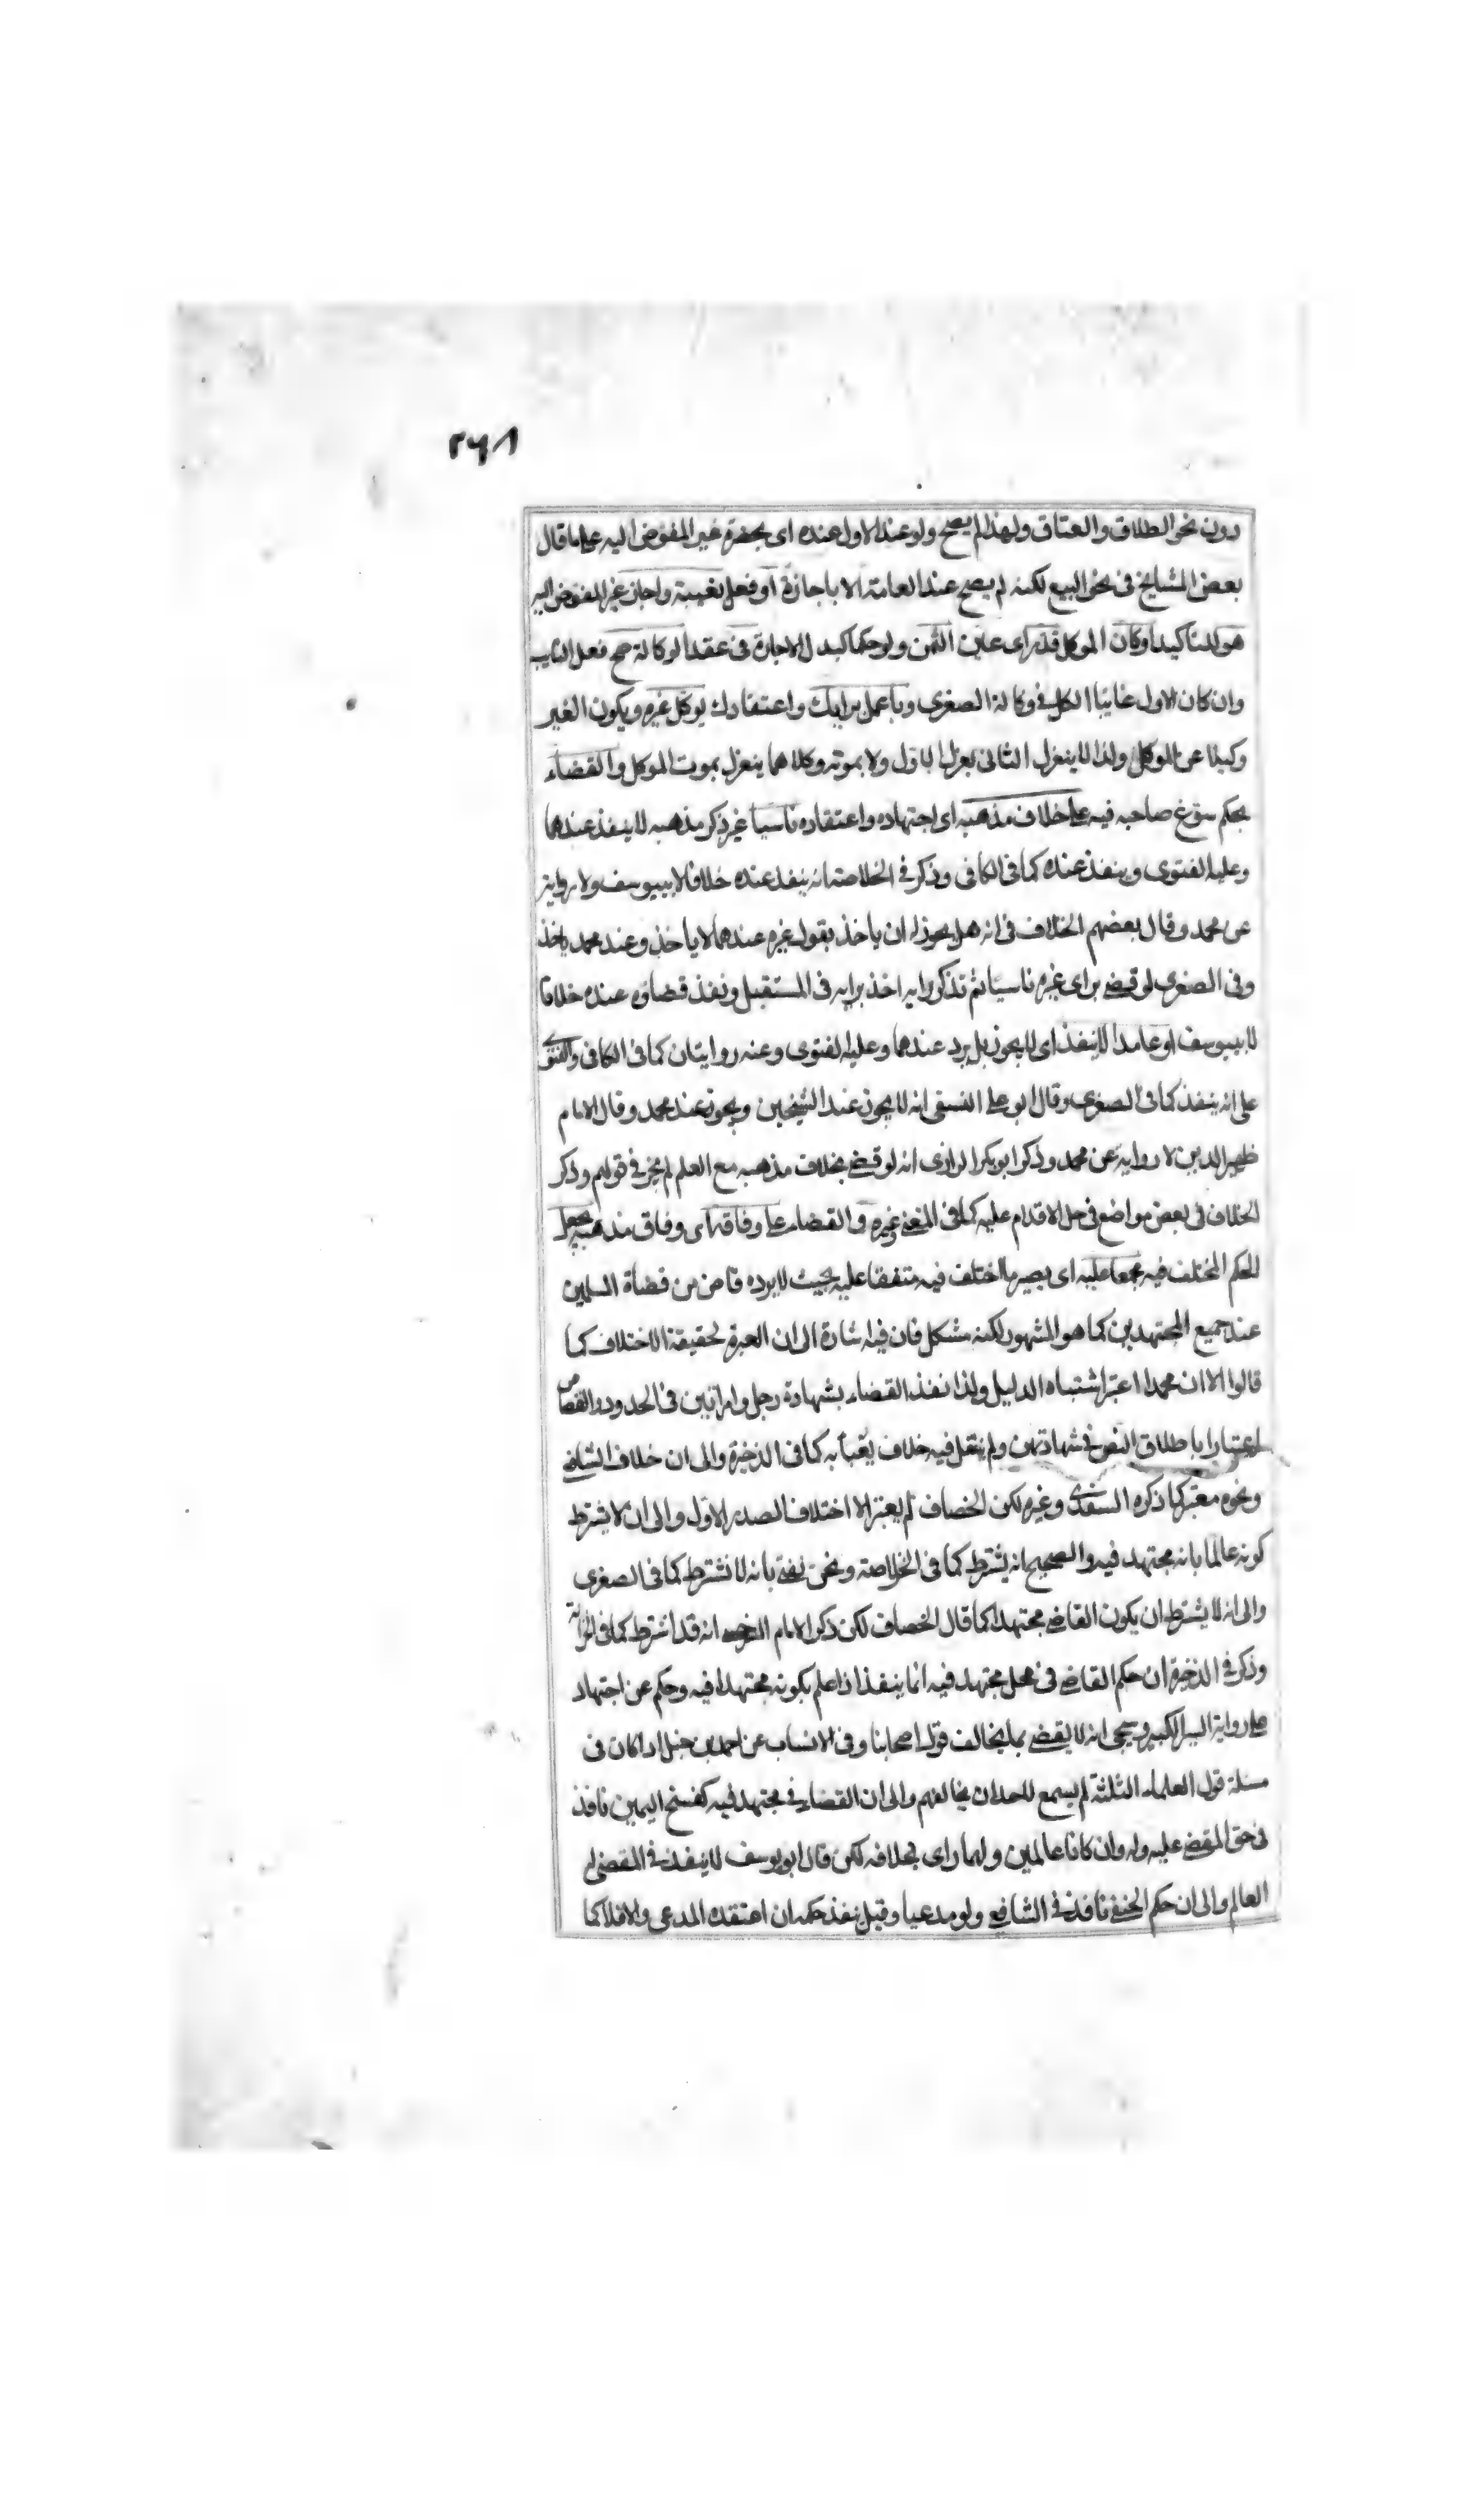 ٢٦٨
دون نحو الطلاق والعتاق ولهذا لم يصح ولو عند الاول عنده اى بحضرة غير المفوض اليه على ما قال
بعض المشايخ فى نحو البيع لكنه لم يصح عند العامة الا باجازة او فعل بغيبته واجاز غير المفوض اليه
هو للتاكيد او كان الموكل قدر اى عين الثمن ولو حكما كبدل الاجارة فى عقد الوكالة صح فعل النايب
وان كان الاول غايبا الكل فى وكالة الصغرى وباعمل برايك واعتقادك يوكل غيره ويكون الغير
وكيلا عن الموكل ولذا لا ينعزل الثانى بعزل الاول ولا بموته وكلاهما ينعزل بموت الموكل والقضاء
بحكم سوغ صاحبه فيه على خلاف مذهبه اى اجتهاده واعتقاده ناسيا غير ذكر مذهبه لا ينفذ عندهما
وعليه الفتوى وينفذ عنده كما فى الكافى وذكر فى الخلاصة انه ينفذ عنده خلافا لابيوسف ولا رواية
عن محمد وقال بعضهم الخلاف فى انه هل يجوز له ان ياخذ بقول غيره عندهما لا ياخذ وعند محمد ياخذ
وفى الصغرى لو قضى براى غيره ناسيا ثم تذكر رايه اخذ برايه فى المستقبل ونفذ قضاؤه عنده خلافا
لابيوسف او عامدا لا ينفذ اى لا يجوز بل يرد عندهما وعليه الفتوى وعنه روايتان كما فى الكافى والفتوى
على انه ينفذ كما فى الصغرى وقال ابو على النسفى انه لا يجوز عند الشيخين ويجوز عند محمد وقال الامام
ظهير الدين لا رواية عن محمد وذكر ابو بكر الرازى انه لو قضى بخلاف مذهبه مع العلم لم يجز فى قولهم وذكر
الخلاف فى بعض مواضع فى حل الاقدام عليه كما فى المغنى وغيره والقضاء على وفاقه اى وفاق مذهبه يجعل
الحكم المختلف فيه مجمعا عليه اى يصير ما اختلف فيه متفقا عليه بحيث لا يرده قاض من قضاة المسلمين
عند جميع المجتهدين كما هو المشهور لكنه مشكل فان فيه اشارة الى ان العبرة لحقيقة الاختلاف كما
قالوا الا ان محمدا اعتبر اشتباه الدليل ولذا نفذ القضاء بشهادة رجل وامراتين فى الحدود والقصاص
اعتبارا باطلاق النص فى شهادتهن ولم ينقل فيه خلاف يعبأ به كما فى الذخيرة والى ان خلاف الشافعى
ونحوه معتبر كما ذكره السغدى وغيره لكن الخصاف لم يعتبر الا اختلاف الصدر الاول والى ان لا يشترط
كونه عالما بانه مجتهد فيه والصحيح انه يشترط كما فى الخلاصة ونحن نفتى بانه لا نشترط كما فى الصغرى
والى انه لا يشترط ان يكون القاضى مجتهدا كما قال الخصاف لكن ذكر الامام السرخسى انه قد اشترط كما فى الخزانة
وذكر فى الذخيرة ان حكم القاضى فى محل مجتهد فيه انما ينفذ اذا علم بكونه مجتهدا فيه وحكم عن اجتهاد
على رواية السير الكبير وسيجى انه لا يقضى بما يخالف قول اصحابنا وفى الانساب عن احمد بن حنبل اذا كان فى
مسئلة قول العلماء الثلثة لم يسمع لاحد ان يخالفهم والى ان القضاء فى مجتهد فيه كفسخ اليمين نافذ
فى حق المقضى عليه وله وان كانا عالمين ولهما راى بخلافه لكن قال ابو يوسف لا ينفذ فى المقضى له
العالم والى ان حكم الحنفى نافذ فى الشافعى ولو مدعيا وقيل ينفذ حكمه ان اعتقده المدعى والا فلا كما